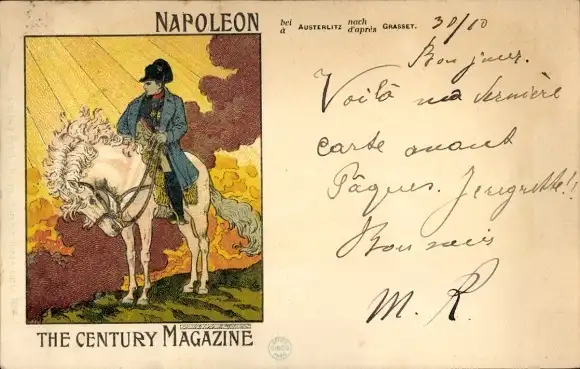 NAPOLEON
bei AUSTERLITZ nach GRASSET.
à d'après
30/10
Bonjour.
Voilà ma dernière
carte avant
Pâques. Je regrette!!
Bonsoir
M. R.
THE CENTURY MAGAZINE